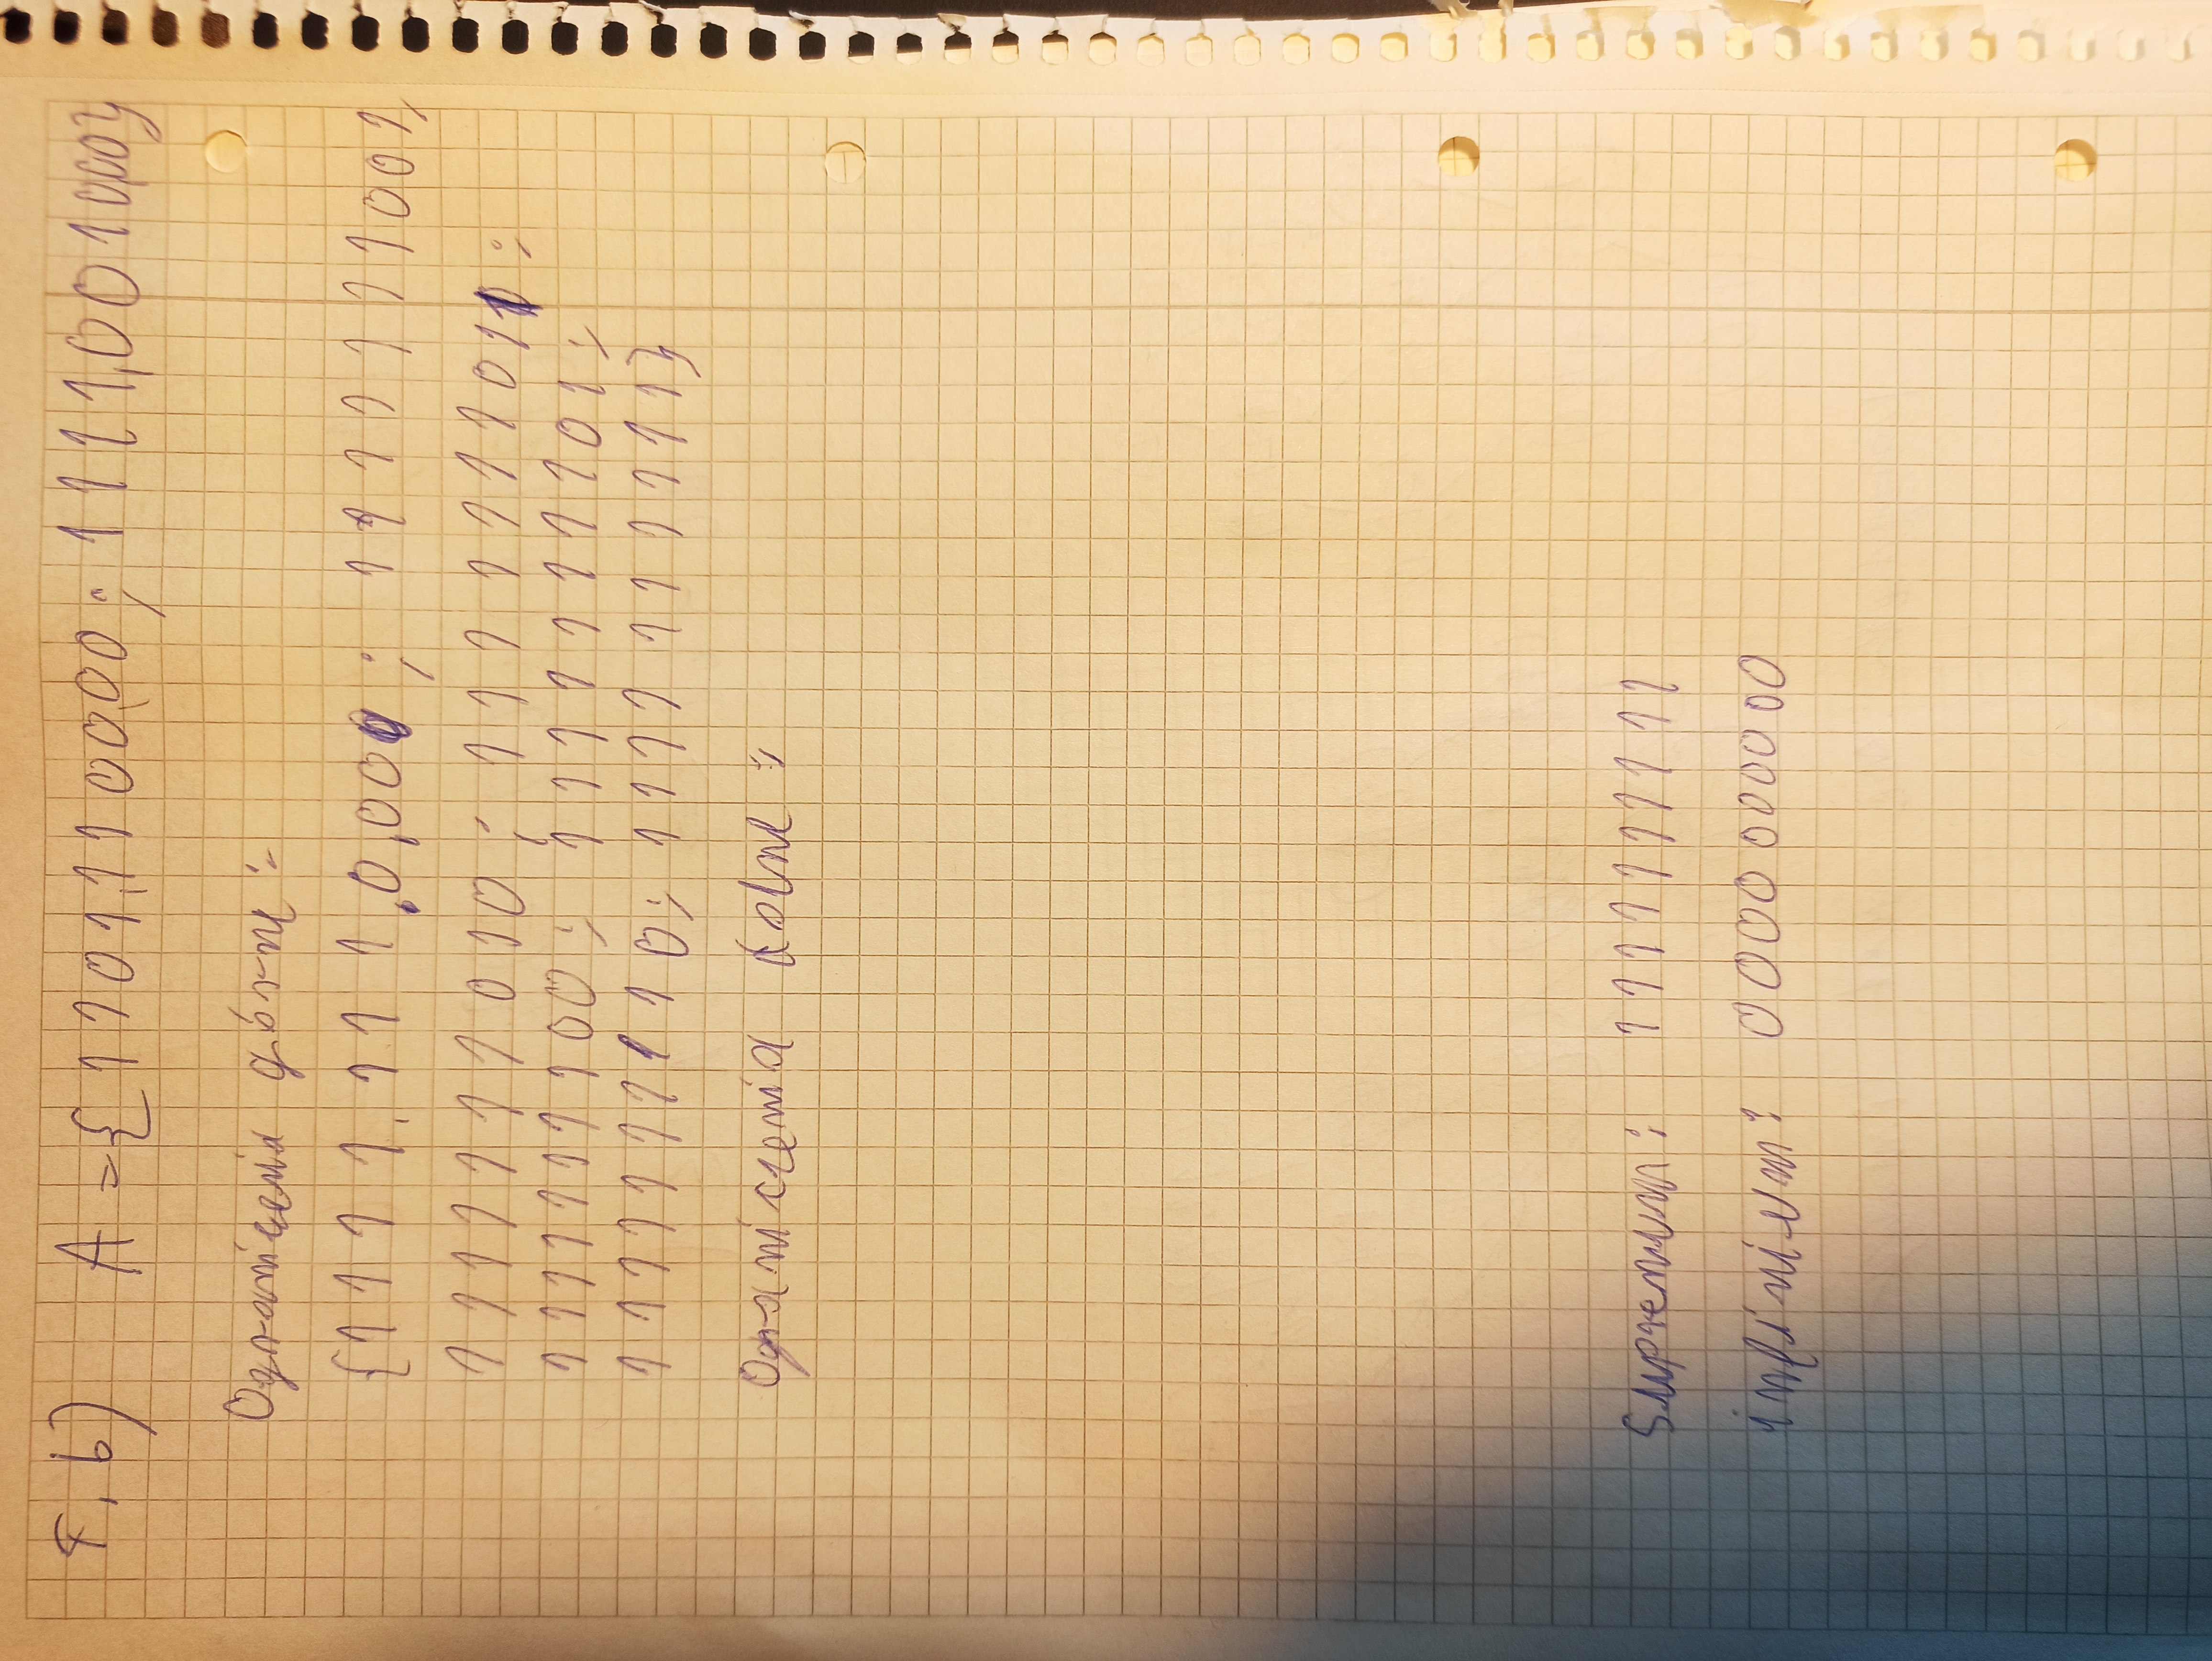 F, b) A = {1101,110000,00 ; 1111,0010,000}
Ograniczenia górne :
{1111,111,0,000 ; 1111111001;
1111111010 ; 1111111011 ;
111111100 ; 1111111101 ;
1111111110 ; 1111111111}
Ograniczenia dolne :
Supremum : 1111111111
infinium : 0000000000